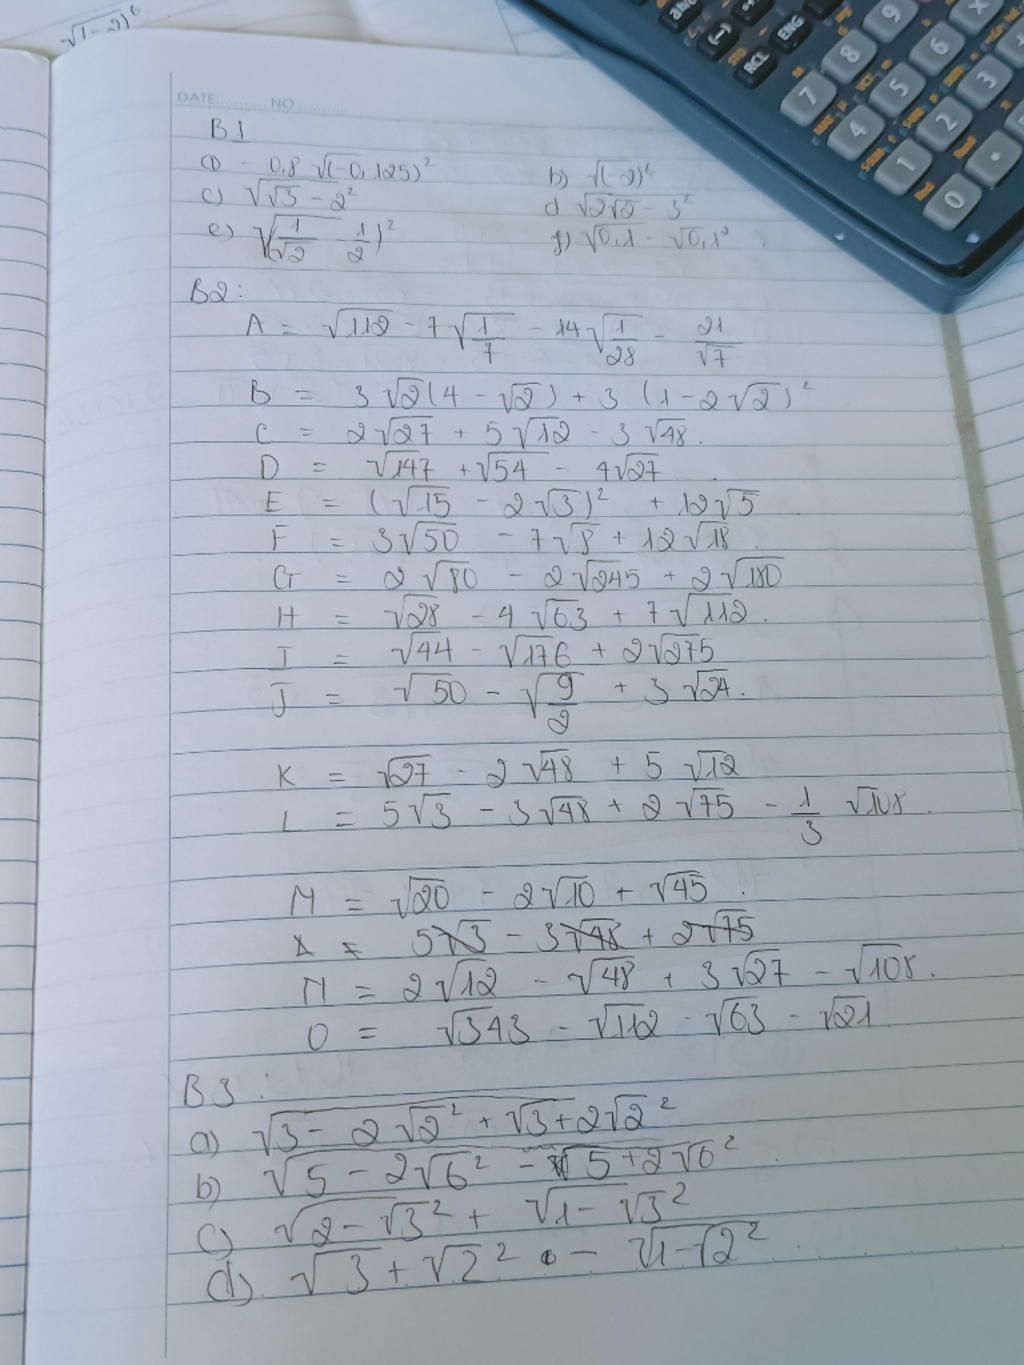 √(-2)⁶
DATE NO
B1
a) - 0,8 √(-0,125)²
b) √(-2)⁶
c) √√3 - 2²
d √2√2 - 3²
e) √(1/√2 - 1/2)²
g) √0,1 - √0,1²
B2:
A = √112 - 7√1/7 - 14√1/28 - 21/√7
B = 3√2(4 - √2) + 3 (1 - 2√2)²
C = 2√27 + 5√12 - 3√48.
D = √147 + √54 - 4√27
E = (√15 - 2√3)² + 12√5
F = 3√50 - 7√8 + 12√18
G = 2√80 - 2√245 + 2√180
H = √28 - 4√63 + 7√112.
I = √44 - √176 + 2√275
J = √50 - √9/2 + 3√24.
K = √27 - 2√48 + 5√12
L = 5√3 - 3√48 + 2√75 - 1/3 √108.
M = √20 - 2√10 + √45.
= 5√3 - 3√48 + 2√75
N = 2√12 - √48 + 3√27 - √108.
O = √343 - √112 - √63 - √21
B3:
a) √3 - 2√2² + √3 + 2√2²
b) √5 - 2√6² - √5 + 2√6²
c) √2 - √3² + √1 - √3²
d) √3 + √2² - √1 - √2²
RCL ENG STO
7 8 9
4 5 6
1 2 3
0